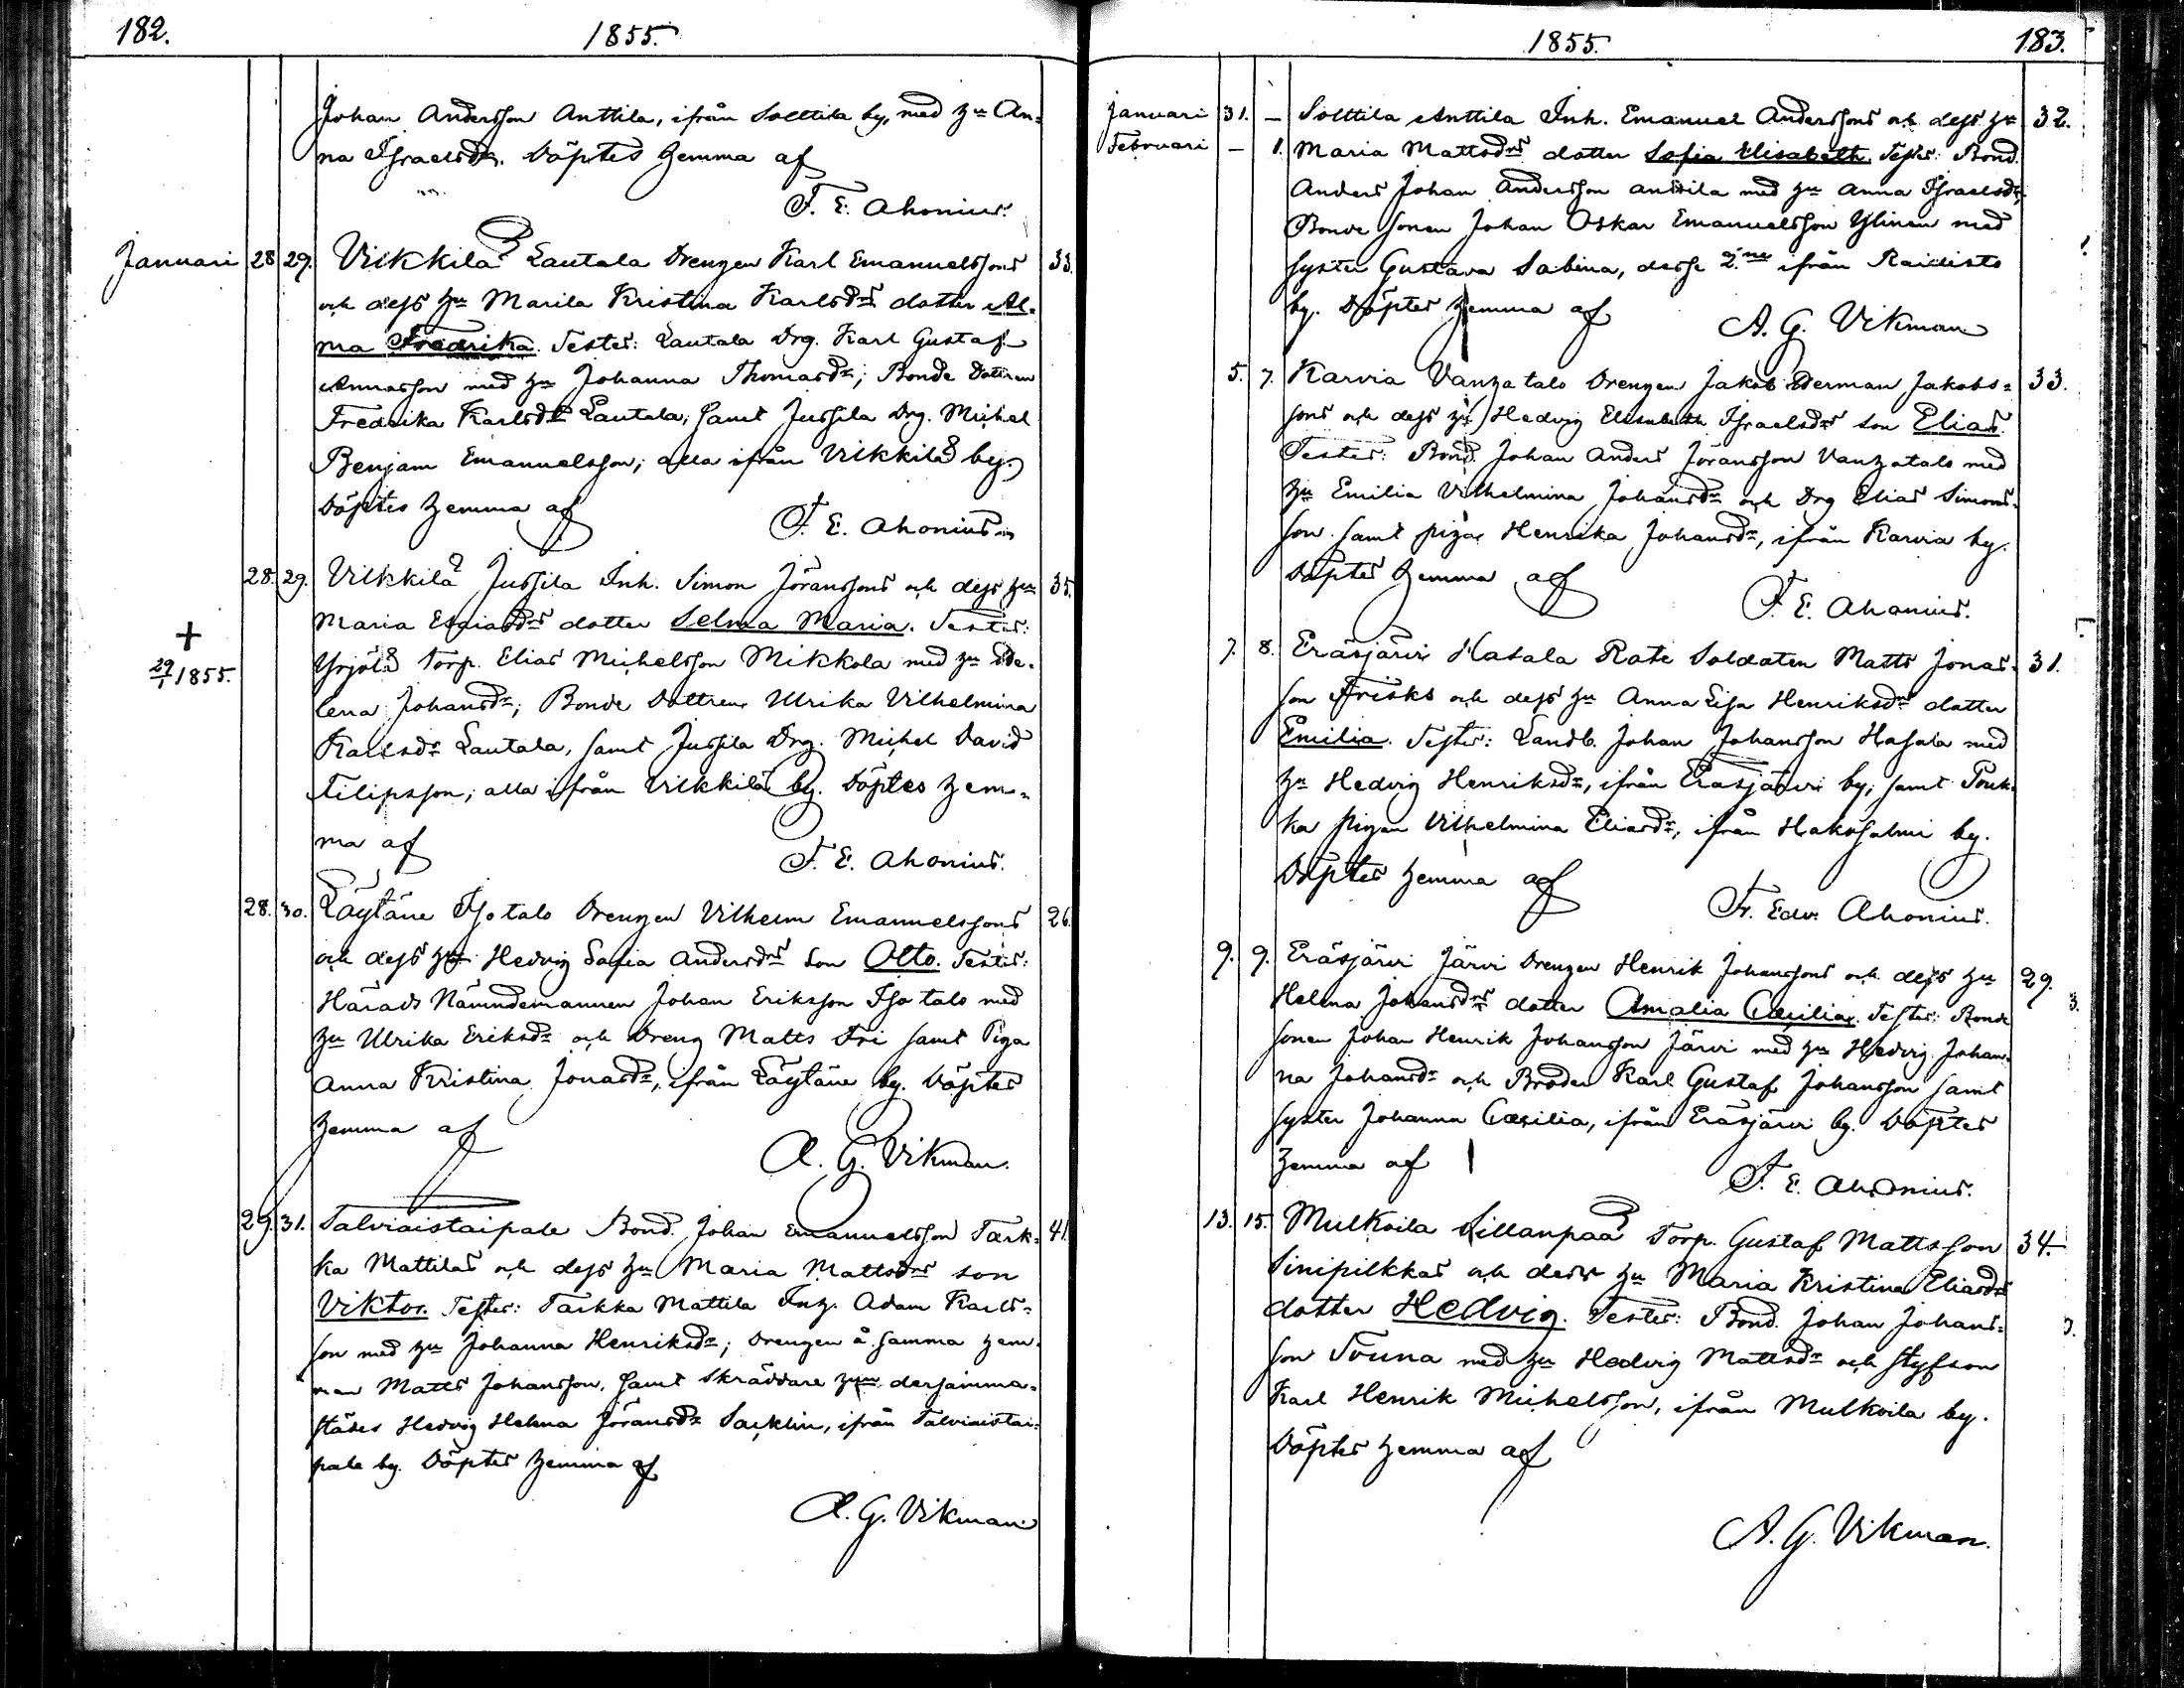 182.
1855.
Johan Andersson Anttila, ifrån Solttila by, med hu An=
na Israelsdr. Döptes hemma af
F. E. Ahonius.
Januari 28 29. Vilkkilä Lautala Drengen Karl Emanuelssons 33.
och dess hu Marila Kristina Karlsdrs dotter Al=
ma Fredrika. Testes: Lautala Drg. Karl Gustaf
med hu Johanna Thomasdr; Bonde Dottren
Fredrika Karlsdr Lautala, samt Jussila Drg. Michel
Benjam Emanuelsson; alla ifrån Vilkkilä by.
Döptes hemma af
F. E. Ahonius
28. 29. Vilkkilä Jussila Inh. Simon Göranssons och dess hu 35.
Maria Esaiasdrs dotter Selma Maria. Testes:
+
29/1 1855.
Yrjölä Torp. Elias Michelsson Mikkola med hu He=
lena Johansdr; Bonde Dottren Ulrika Vilhelmina
Karlsdr Lautala, samt Jussila Drg. Michel David
Filipsson; alla ifrån Vilkkilä by. Döptes hem=
ma af
F. E. Ahonius.
28. 30. Läytäne Isotalo Drengen Vilhelm Emanuelssons 26.
och dess hu Hedvig Sofia Andersdrs son Otto. Testes:
Härads Nämndemannen Johan Eriksson Isotalo med
hu Ulrika Eriksdr och Dreng Matts Fri samt Piga
Anna Kristina Jonasdr, ifrån Läytäne by. Döptes
hemma af
A. G. Vikman.
29. 31. Talviaistaipale Bond. Johan Emanuelsson Tark= 41.
ka Mattilas och dess hu Maria Mattsdrs son
Viktor. Testes: Tarkka Mattila Inh. Adam Karls=
son med hu Johanna Henriksdr; Drengen å samma hem=
man Matts Johansson, samt Skräddare hun dersamma=
städes Hedvig Helena Göransdr Sacklin, ifrån Talviaistai=
pale by. Döptes hemma af
A. G. Vikman
1855.
183.
Januari 31. – Solttila Anttila Inh. Emanuel Anderssons och dess hu 32.
Februari – 1. Maria Mattsdrs dotter Sofia Elisabeth. Testes: Bond.
Anders Johan Andersson Anttila med hu Anna Israelsdr;
Bonde sonen Johan Oskar Emanuelsson Ylinen med
syster Gustava Sabina, desse 2ne ifrån Raidisto
by. Döptes hemma af
A. G. Vikman
5. 7. Karvia Vanhatalo Drengen Jakob Jakobs= 33.
sons och dess hu Hedvig Elisabeth Israelsdrs son Elias.
Testes: Bond. Johan Anders Göransson Vanhatalo med
hu Emilia Vilhelmina Johansdr och Drg Elias Simons=
son samt pigan Henrika Johansdr, ifrån Karvia by.
Döptes hemma af
F. E. Ahonius.
7. 8. Eräsjärvi Hasala Rote Soldaten Matts Jonas= 31.
son Frisks och dess hu Anna Lisa Henriksdrs dotter
Emilia. Testes: Landb. Johan Johansson Hasala med
hu Hedvig Henriksdr, ifrån Eräsjärvi by, samt Pouk=
ka pigan Vilhelmina Eliasdr, ifrån Hakosalmi by.
Döptes hemma af
Fr. Edv. Ahonius.
9. 9. Eräsjärvi Järvi Drengen Henrik Johanssons och dess hu 29.
Helena Johansdrs dotter Amalia Cæcilia. Testes: Bonde
sonen Johan Henrik Johansson Järvi med hu Hedvig Johan=
na Johansdr och Broder Karl Gustaf Johansson samt
syster Johanna Cæcilia, ifrån Eräsjärvi by. Döptes
hemma af
F. E. Ahonius.
13. 15. Mulkoila Sillanpää Torp. Gustaf Mattsson 34.
Sinipilkkas och dess hu Maria Kristina Eliasdrs
dotter Hedvig. Testes: Bond. Johan Johans=
son Touna med hu Hedvig Mattsdr och styfson
Karl Henrik Michelsson, ifrån Mulkoila by.
Döptes hemma af
A. G. Vikman.